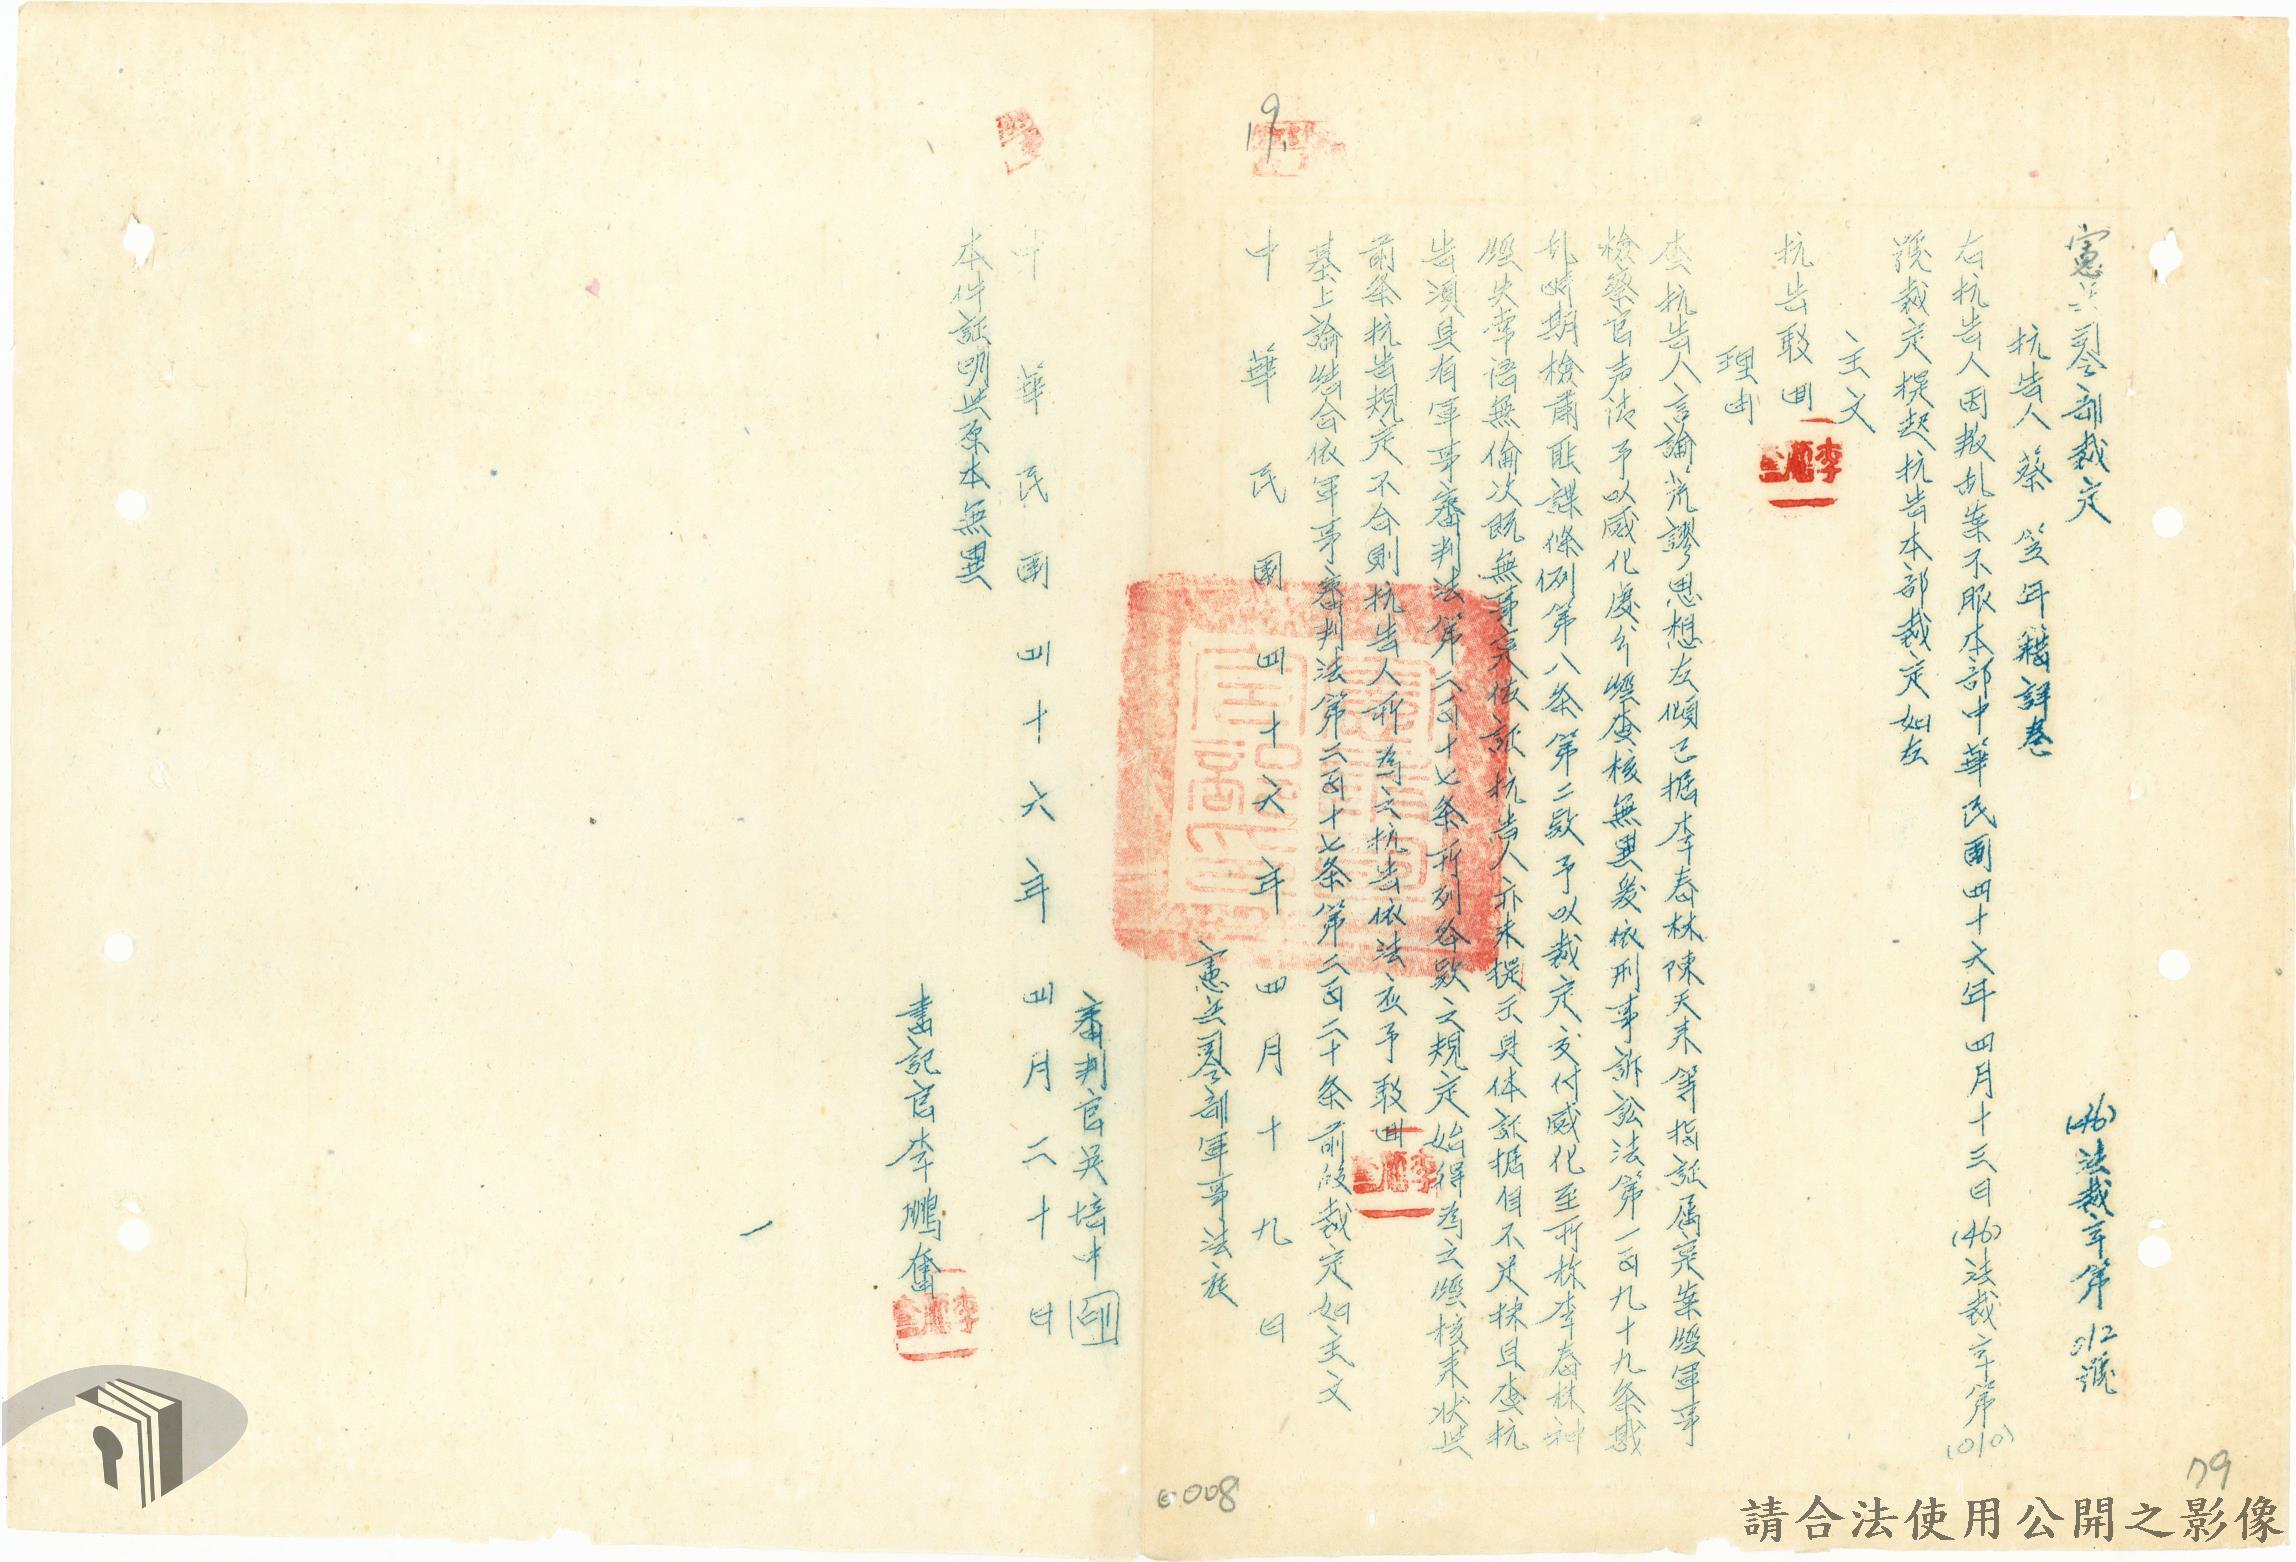 憲兵司令部裁定
(46)法裁字第012號
抗告人 蔡 笠年籍詳卷
右抗告人因叛乱案不服本部中華民國四十六年四月十三日(46)法裁字第(010)
號裁定提起抗告本部裁定如左
主文
抗告駁回
理由
查抗告人言論荒謬思想左傾已据李春林陳天來等指証属实案經軍事
檢察官声請予以感化處分經查核無異爰依刑事訴訟法第一百九十九条戡
乱時期檢肅匪諜條例第八条第二款予以裁定交付感化至所称李春林神
經失常語無倫次既無事实佐証抗告人亦未提示具体証据自不足採且查抗
告須具有軍事審判法第二百十七条所列各款之規定始得為之經核來狀與
前条抗告規定不合則抗告人所為之抗告依法应予駁回
基上論結合依軍事審判法第二百十七条第二百二十条前段裁定如主文
中華民國四十六年四月十九日
憲兵司令部軍事法庭
審判官吳培中 印
中華民國四十六年四月二十日
本件証明與原本無異
書記官李鵬奮
19.
79
008
請合法使用公開之影像